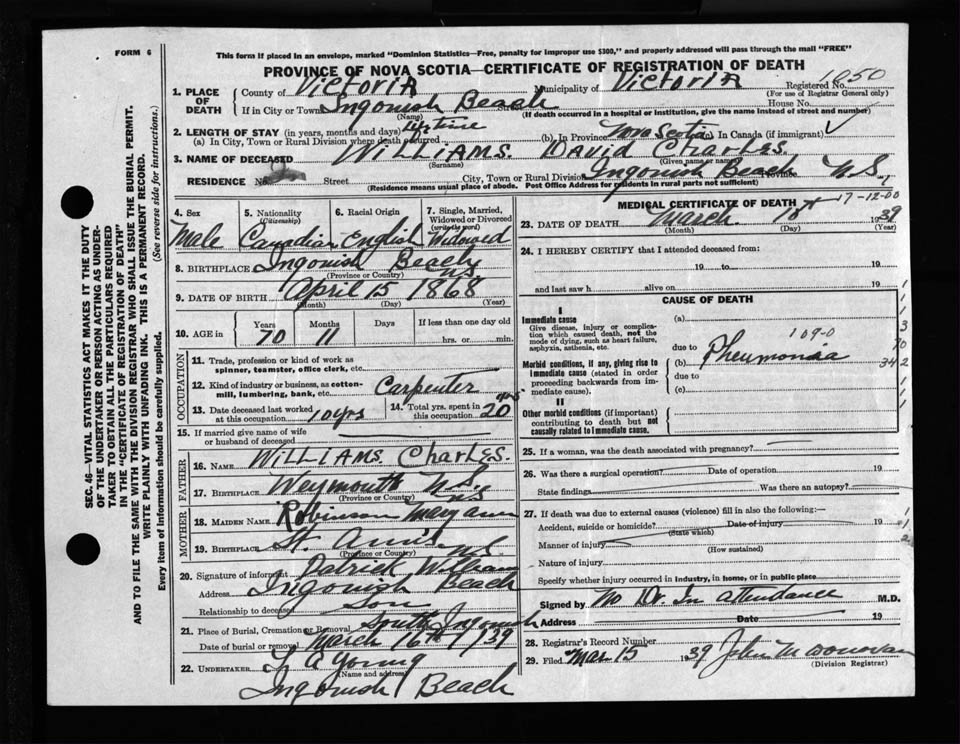 FORM 6
This form if placed in an envelope, marked "Dominion Statistics—Free, penalty for improper use $300," and properly addressed will pass through the mail "FREE"
PROVINCE OF NOVA SCOTIA—CERTIFICATE OF REGISTRATION OF DEATH
1. PLACE OF DEATH
County of Victoria Municipality of Victoria Registered No. 1050
(For use of Registrar General only)
If in City or Town Ingonish Beach Street House No.
(Name) (If death occurred in a hospital or institution, give the name instead of street and number)
2. LENGTH OF STAY (in years, months and days)
(a) In City, Town or Rural Division where death occurred Lifetime (b) In Province Nova Scotia In Canada (if immigrant)
3. NAME OF DECEASED WILLIAMS. DAVID CHARLES.
(Surname) (Given name or names)
RESIDENCE No. Street City, Town or Rural Division Ingonish Beach Province N.S.
(Residence means usual place of abode. Post Office Address for residents in rural parts not sufficient)
4. Sex
Male
5. Nationality
(Citizenship)
Canadian
6. Racial Origin
English
7. Single, Married, Widowed or Divorced
(write the word)
Widowed
8. BIRTHPLACE Ingonish Beach N.S.
(Province or Country)
9. DATE OF BIRTH April 15 1868
(Month) (Day) (Year)
10. AGE in
Years 70
Months 11
Days
If less than one day old
hrs. or min.
OCCUPATION
11. Trade, profession or kind of work as spinner, teamster, office clerk, etc.
12. Kind of industry or business, as cotton-mill, lumbering, bank, etc. Carpenter
13. Date deceased last worked at this occupation 10 yrs
14. Total yrs. spent in this occupation 20 yrs
15. If married give name of wife or husband of deceased
FATHER
16. NAME WILLIAMS CHARLES.
17. BIRTHPLACE Weymouth N.S.
(Province or Country)
MOTHER
18. MAIDEN NAME Robinson Mary ann
19. BIRTHPLACE St. Ann's N.S.
(Province or Country)
20. Signature of informant Patrick William
Address Ingonish Beach
Relationship to deceased Son
21. Place of Burial, Cremation or Removal South Ingonish
Date of burial or removal March 16th 1939
22. UNDERTAKER Young
(Name and address)
Ingonish Beach
MEDICAL CERTIFICATE OF DEATH 7-12-00
23. DATE OF DEATH March 1939
(Month) (Day) (Year)
24. I HEREBY CERTIFY that I attended deceased from:
19 to 19
and last saw h alive on 19
CAUSE OF DEATH
I
Immediate cause
Give disease, injury or complication which caused death, not the mode of dying, such as heart failure, asphyxia, asthenia, etc.
(a)
due to 109-0
Morbid conditions, if any, giving rise to immediate cause (stated in order proceeding backwards from immediate cause).
(b) Pneumonia
due to
(c)
II
Other morbid conditions (if important) contributing to death but not causally related to immediate cause.
25. If a woman, was the death associated with pregnancy?
26. Was there a surgical operation? Date of operation 19
State findings Was there an autopsy?
27. If death was due to external causes (violence) fill in also the following:—
Accident, suicide or homicide? Date of injury 19
(State which)
Manner of injury
(How sustained)
Nature of injury
Specify whether injury occurred in industry, in home, or in public place
Signed by No Dr. In attendance M.D.
Address Date 19
28. Registrar's Record Number
29. Filed Mar 15 1939 John M Donovan
(Division Registrar)
SEC. 46—VITAL STATISTICS ACT MAKES IT THE DUTY
OF THE UNDERTAKER OR PERSON ACTING AS UNDER-
TAKER TO OBTAIN ALL THE PARTICULARS REQUIRED
IN THE "CERTIFICATE OF REGISTRATION OF DEATH"
AND TO FILE THE SAME WITH THE DIVISION REGISTRAR WHO SHALL ISSUE THE BURIAL PERMIT.
WRITE PLAINLY WITH UNFADING INK. THIS IS A PERMANENT RECORD.
Every item of information should be carefully supplied. (See reverse side for instructions.)